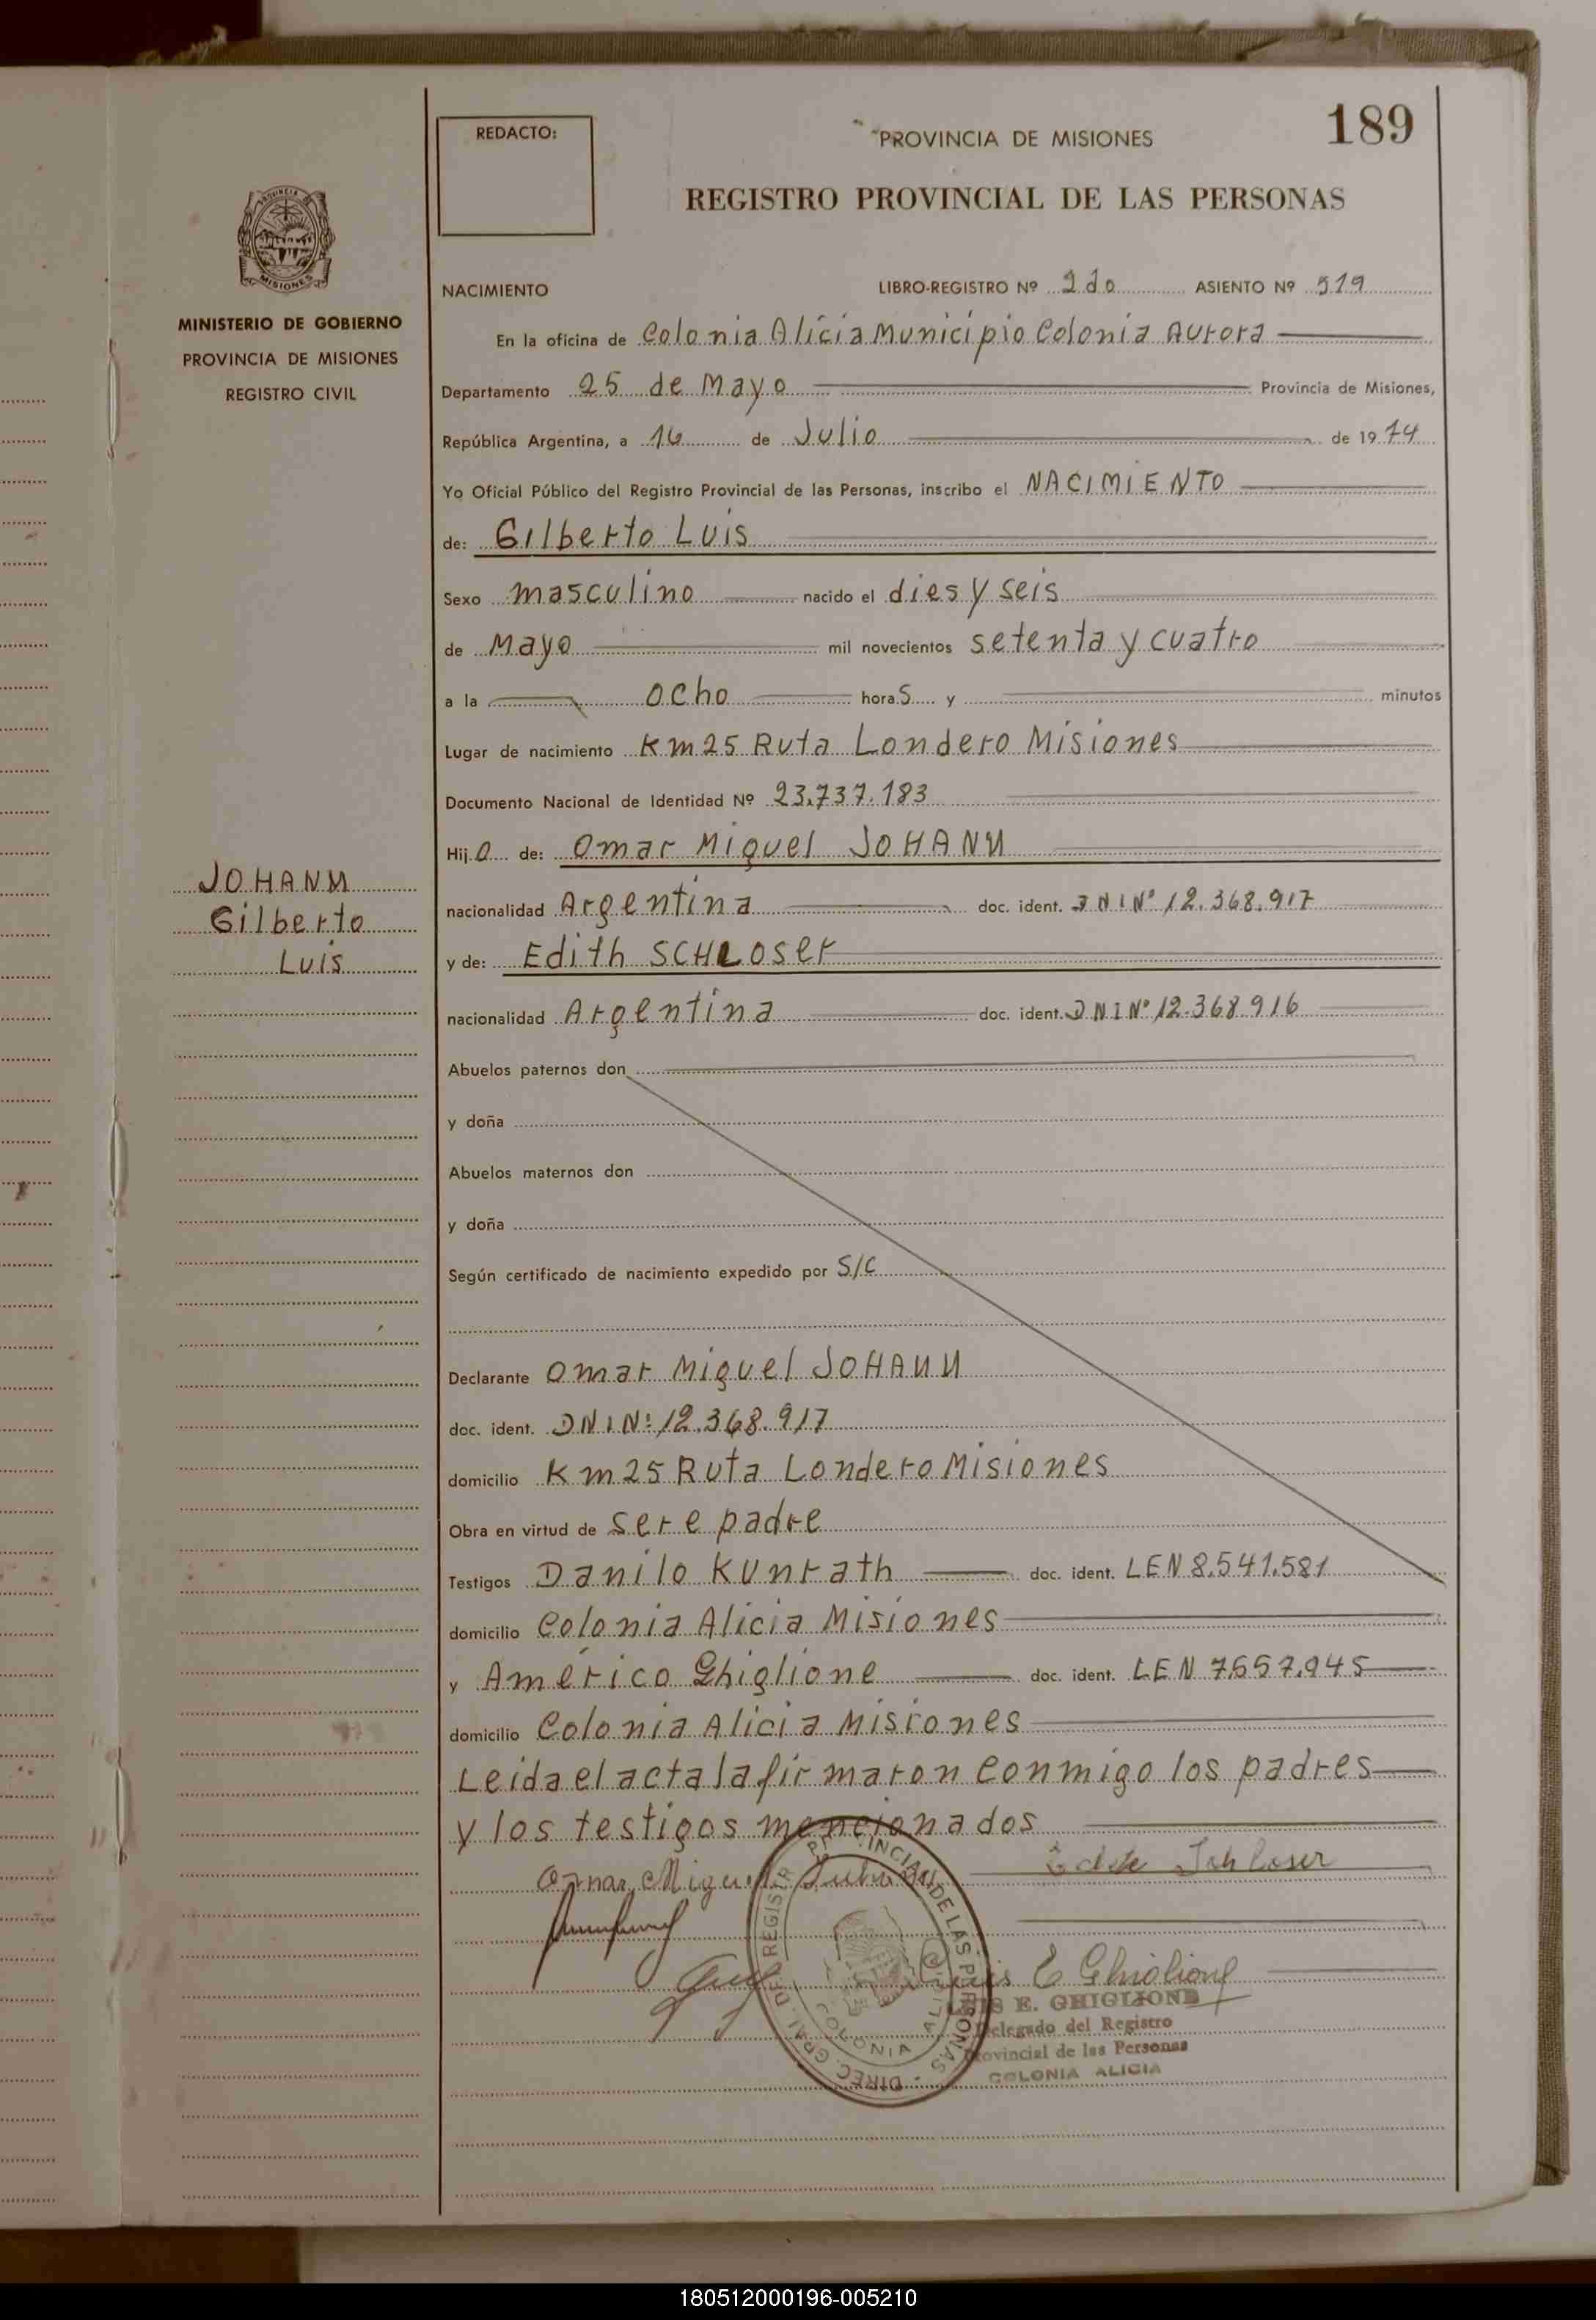 189
REDACTO:
PROVINCIA DE MISIONES
REGISTRO PROVINCIAL DE LAS PERSONAS
PROVINCIA
MISIONES
MINISTERIO DE GOBIERNO
PROVINCIA DE MISIONES
REGISTRO CIVIL
JOHANN
Gilberto
Luis
NACIMIENTO LIBRO-REGISTRO Nº 2do ASIENTO Nº 519
En la oficina de Colonia Alicia Municipio Colonia Aurora
Departamento 25 de Mayo Provincia de Misiones,
República Argentina, a 16 de Julio de 1974
Yo Oficial Público del Registro Provincial de las Personas, inscribo el NACIMIENTO
de: Gilberto Luis
Sexo masculino nacido el dies y seis
de Mayo mil novecientos setenta y cuatro
a la ocho horas y minutos
Lugar de nacimiento Km 25 Ruta Londero Misiones
Documento Nacional de Identidad Nº 23.737.183
Hijo de: Omar Miguel JOHANN
nacionalidad Argentina doc. ident. DNI Nº 12.368.917
y de: Edith SCHLOSer
nacionalidad Argentina doc. ident. DNI Nº 12.368.916
Abuelos paternos don
y doña
Abuelos maternos don
y doña
Según certificado de nacimiento expedido por S/C
Declarante Omar Miguel JOHANN
doc. ident. DNI N: 12.368.917
domicilio Km 25 Ruta Londero Misiones
Obra en virtud de ser e padre
Testigos Danilo Kunrath doc. ident. LEN 8.541.581
domicilio Colonia Alicia Misiones
y Américo Ghiglione doc. ident. LEN 7.557.945
domicilio Colonia Alicia Misiones
Leida el acta la firmaron conmigo los padres
y los testigos mencionados
Omar Miguel
Luis E Ghiglione
E. GHIGLIONE
Delegado del Registro
Provincial de las Personas
COLONIA ALICIA
DIREC. GRAL. DE REGISTR PROVINCIAL DE LAS PERSONAS
COLONIA ALICIA
180512000196-005210